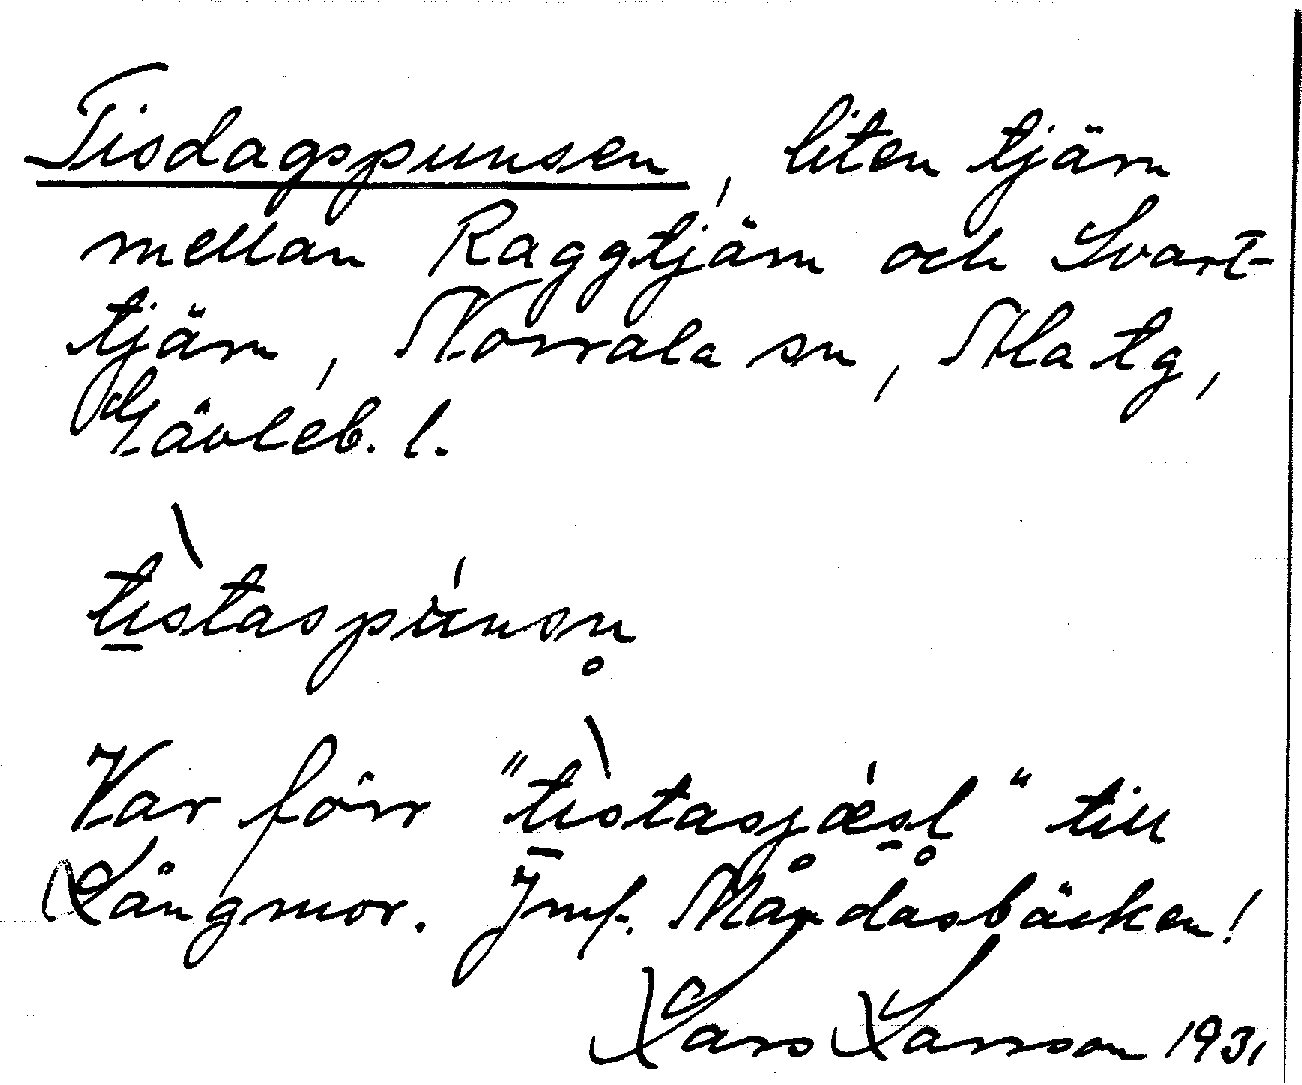 Tisdagspunsen, liten tjärn
mellan Raggtjärn och Svart-
tjärn, Norrala sn, Ala tg,
Gävleb. l.
tìstaspúnsn̥
Var förr "tìstasjæ̊́sl̥" till
Långmor. Jmf. Måndasbäcken!
Lars Larsson 1931